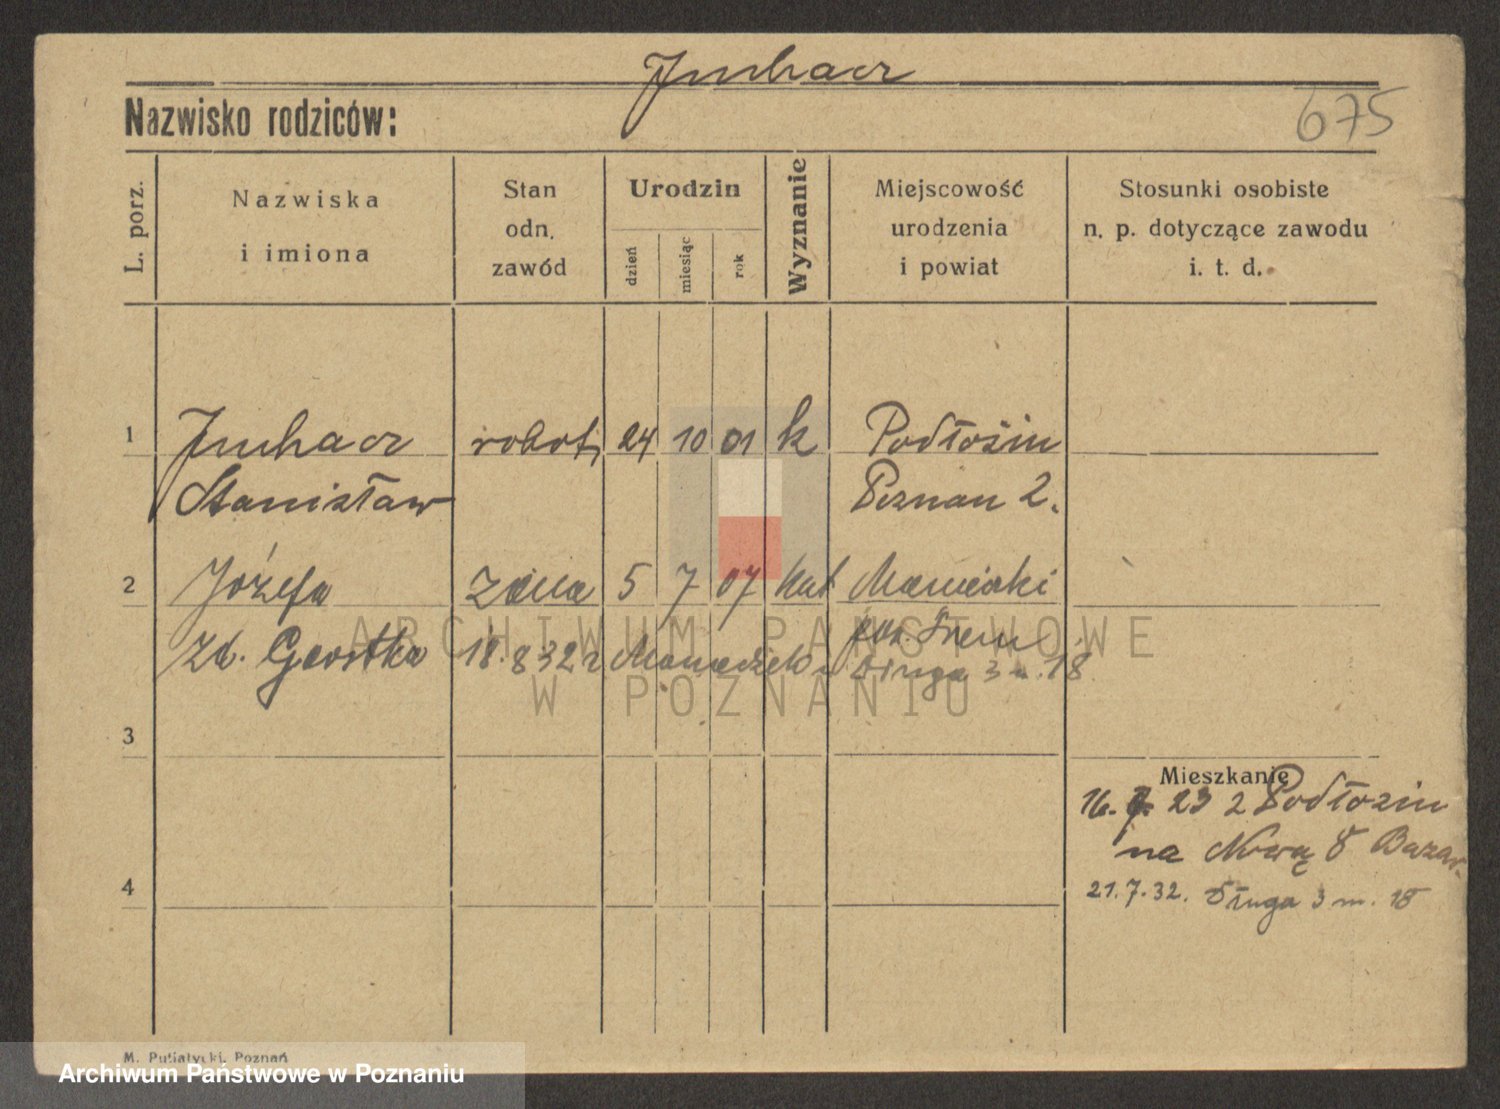 Juchacz
Nazwisko rodziców:
675
L. porz.
Nazwiska
i imiona
Stan
odn.
zawód
Urodzin
dzień
miesiąc
rok
Wyznanie
Miejscowość
urodzenia
i powiat
Stosunki osobiste
n. p. dotyczące zawodu
i. t. d.
1 Juchacz robot. 24 10 01 k Podłozin
Stanisław Poznan 2.
2 Józefa żona 5 7 07 kat Manieczki
zd. Gerstka 18.8 32 z pow. Śrem
Długa 3 m. 18
3
Mieszkanie
16. 23 z Podłozin
na Nową 8 Bazar
4
21.7.32. Długa 3 m. 18
M. Putiatycki, Poznań
ARCHIWUM PAŃSTWOWE
W POZNANIU
Archiwum Państwowe w Poznaniu